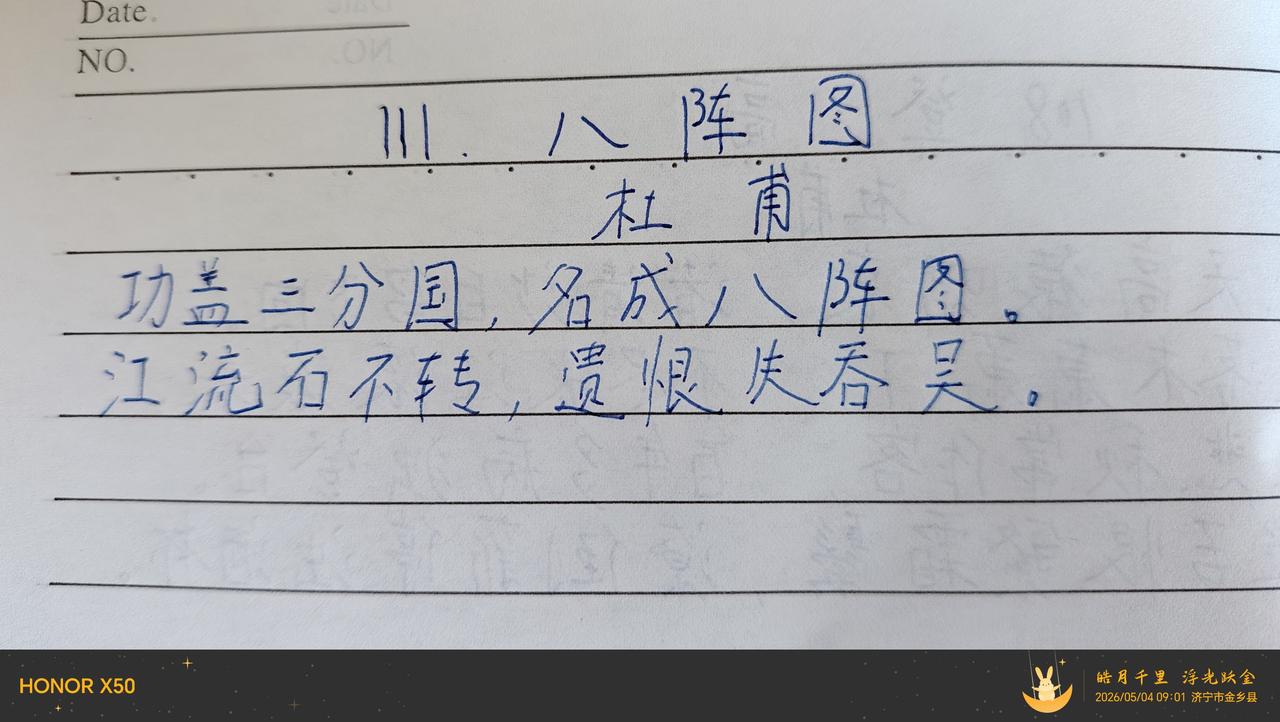 Date.
NO.
111. 八阵图
杜甫
功盖三分国,名成八阵图。
江流石不转,遗恨失吞吴。
HONOR X50
皓月千里 浮光跃金
2026/05/04 09:01 济宁市金乡县